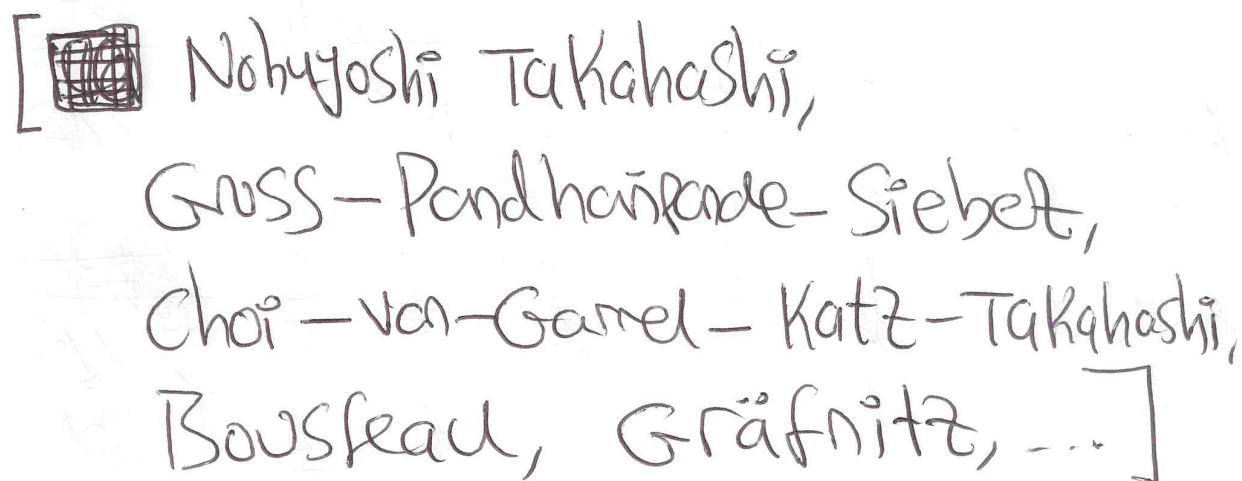 [ Nobuyoshi Takahashi,
Gross-Pandharipande-Siebert,
Choi-van-Garrel-Katz-Takahashi,
Bousseau, Gräfnitz, ...]